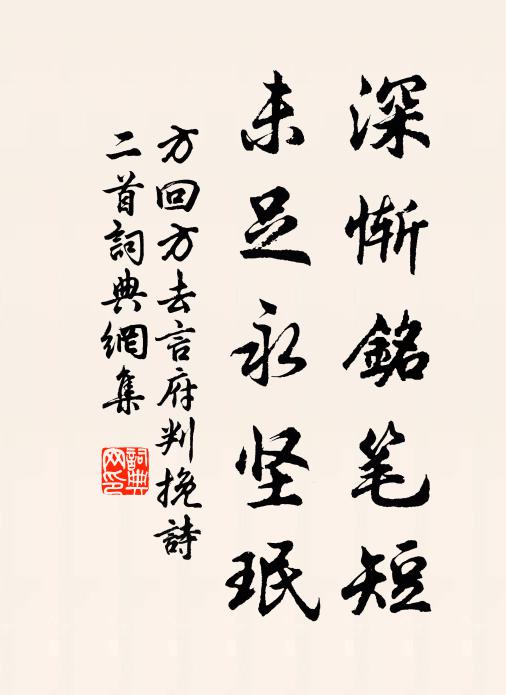 深惭銘笔短
未足永坚珉
方回方去言府判挽詩
二首詞典網集
詞典
网印